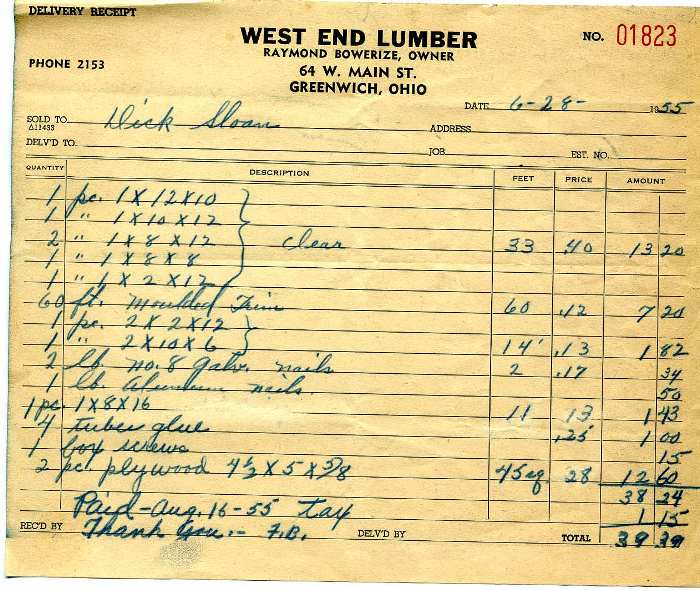 DELIVERY RECEIPT
WEST END LUMBER
NO. 01823
RAYMOND BOWERIZE, OWNER
PHONE 2153
64 W. MAIN ST.
GREENWICH, OHIO
DATE 6-28- 1955
SOLD TO Dick Sloan ADDRESS
Δ11433
DELV'D TO JOB EST. NO.
QUANTITY DESCRIPTION FEET PRICE AMOUNT
1 pc. 1 X 12 X 10
1 " 1 X 10 X 12
2 " 1 X 8 X 12 clear 33 .40 13 20
1 " 1 X 8 X 8
1 " 1 X 2 X 12
60 ft. Moulded Trim 60 .12 7 20
1 pc. 2 X 2 X 12
1 " 2 X 10 X 6 14' .13 1 82
2 lb. no. 8 Galv. nails 2 .17 34
1 lb. Aluminum nails. 50
1 pc. 1 X 8 X 16 11 13 1 43
4 tubes glue .25 1 00
1 box screws 15
2 pc. plywood 4 1/2 X 5 X 5/8 45 sq 28 12 60
38 24
Paid - Aug. 16-55 tax 1 15
REC'D BY Thank You.- F.B. DELV'D BY TOTAL 39 39